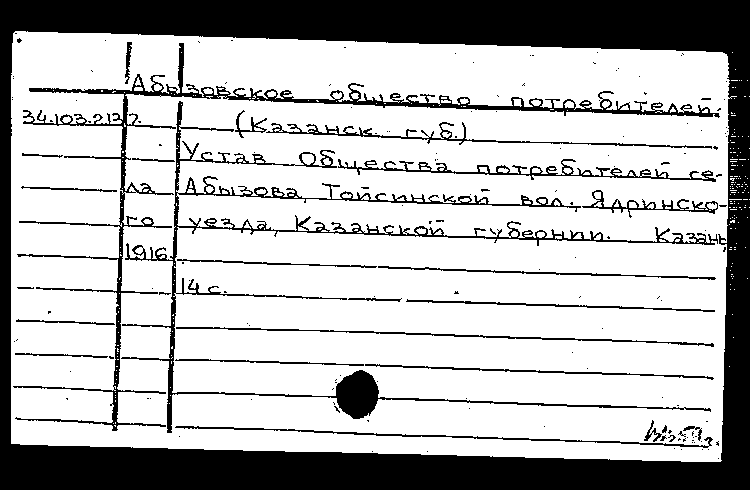 Абызовское общество потребителей.
34.103.2137. (Казанск губ.)
Устав Общества потребителей се-
ла Абызова, Тойсинской вол., Ядринско-
го уезда, Казанской губернии. Казань,
1916.
14 с.